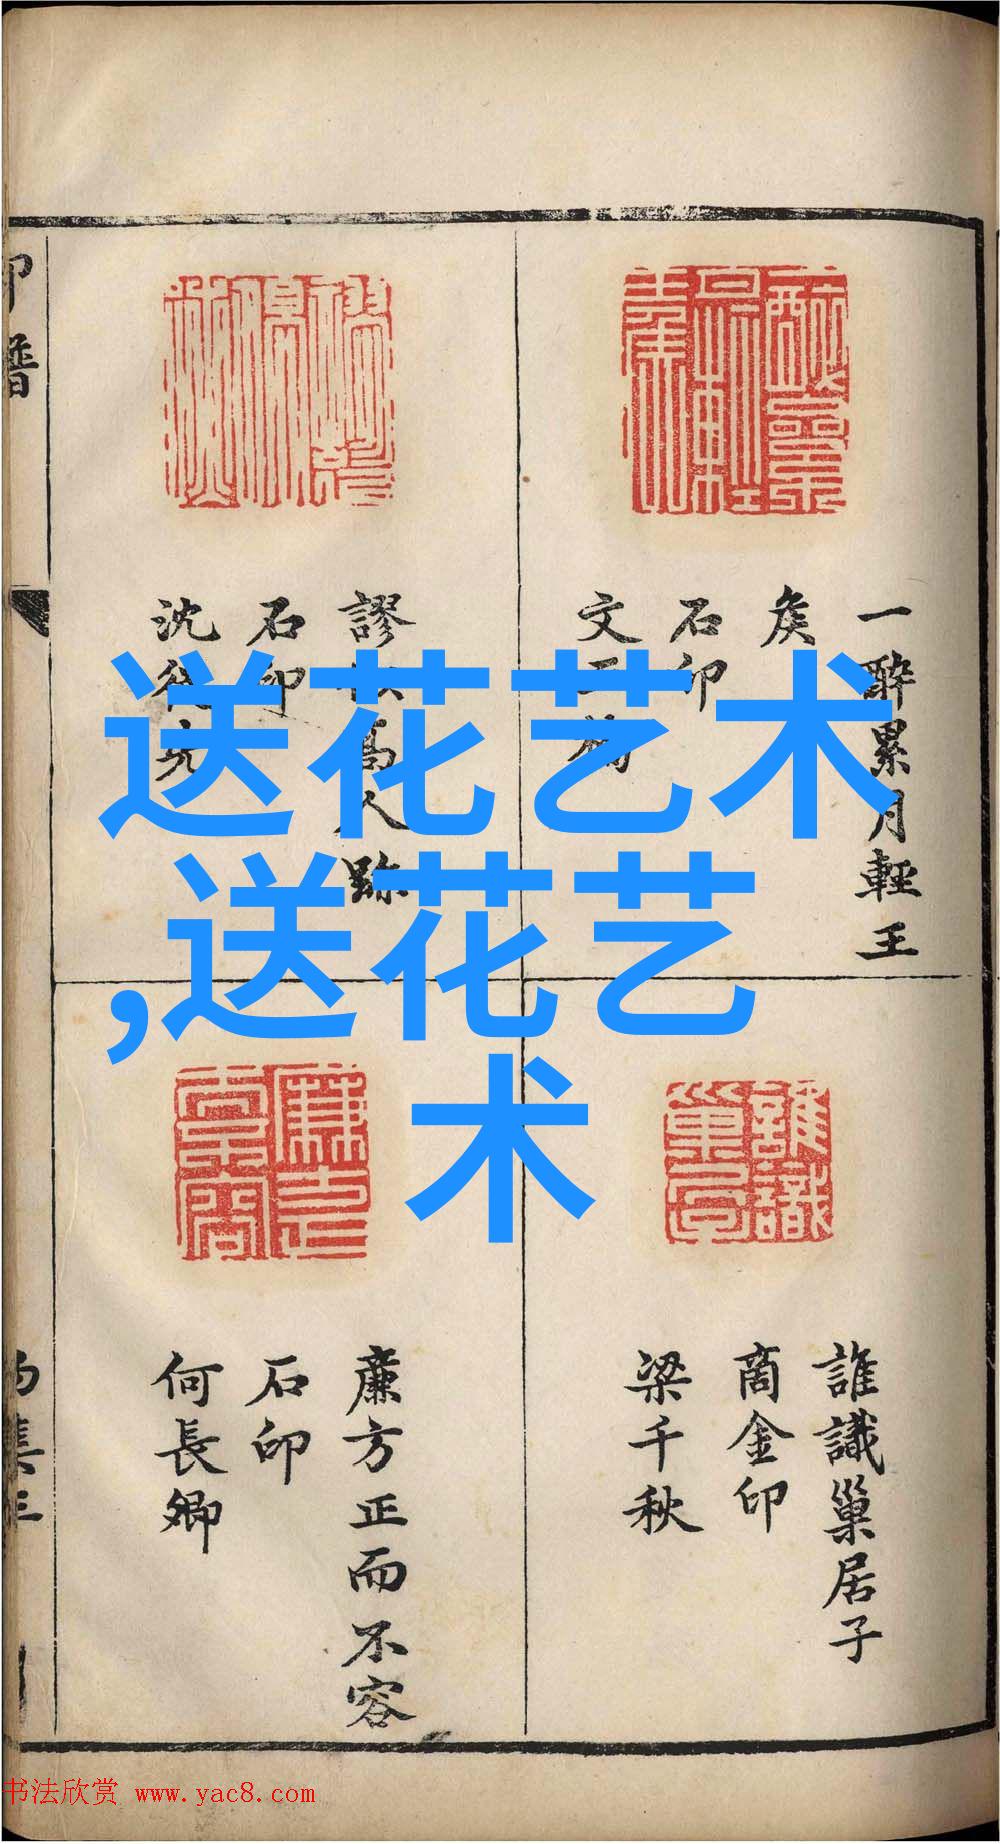 一醉累月輕王
矦
石印
文三橋
謬
高人跡
石印
沈
誰識巢居子
商金印
梁千秋
廉方正而不容
石印
何長卿
送花艺术
,送花艺
术
书法欣赏 www.yac8.com